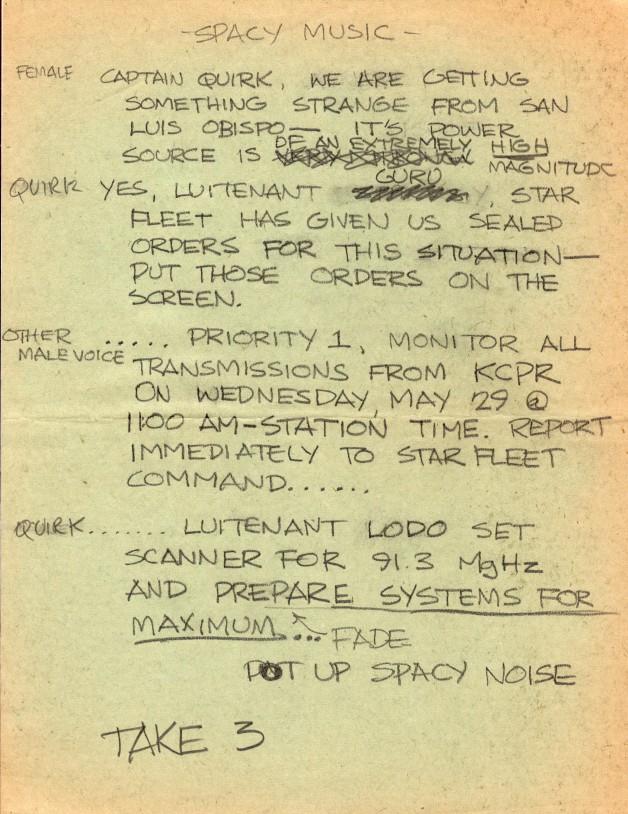 -SPACY MUSIC-
FEMALE CAPTAIN QUIRK, WE ARE GETTING
SOMETHING STRANGE FROM SAN
LUIS OBISPO— IT'S POWER
OF AN EXTREMELY HIGH
SOURCE IS MAGNITUDE
GURU
QUIRK YES, LUITENANT , STAR
FLEET HAS GIVEN US SEALED
ORDERS FOR THIS SITUATION—
PUT THOSE ORDERS ON THE
SCREEN.
OTHER ..... PRIORITY 1, MONITOR ALL
MALE VOICE TRANSMISSIONS FROM KCPR
ON WEDNESDAY, MAY 29 @
11:00 AM-STATION TIME. REPORT
IMMEDIATELY TO STAR FLEET
COMMAND......
QUIRK....... LUITENANT LODO SET
SCANNER FOR 91.3 MgHz
AND PREPARE SYSTEMS FOR
MAXIMUM... FADE
POT UP SPACY NOISE
TAKE 3